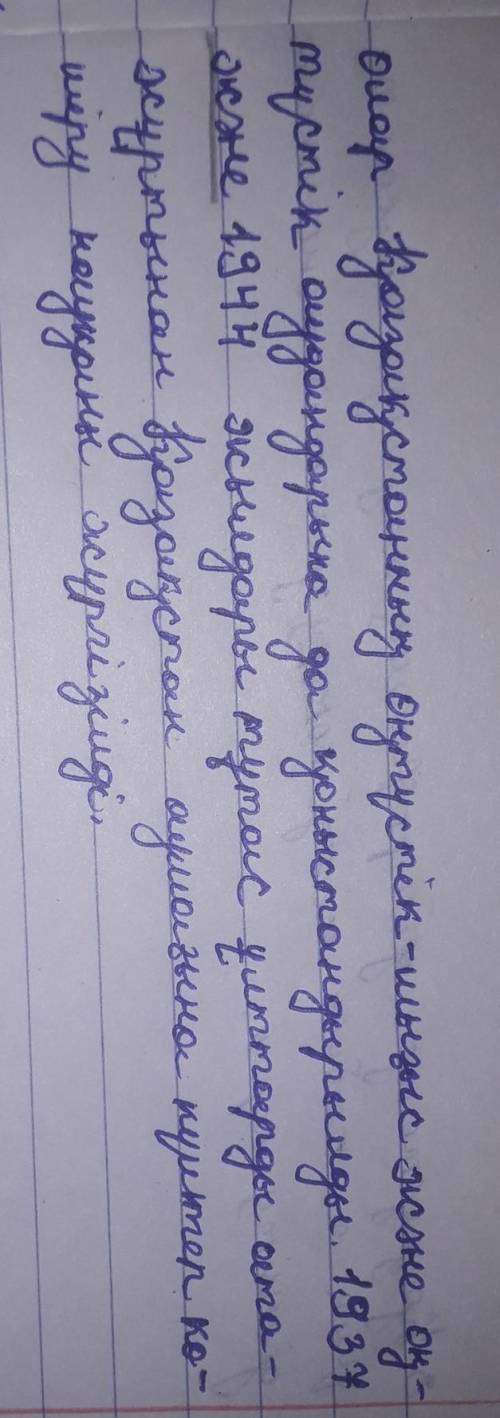 олар Қазақстанның оңтүстік-шығыс және оң-
түстік аудандарына да қоныстандырылды. 1937
және 1944 жылдары тұтас ұлттарды ата-
жұртынан Қазақстан аумағына күштеп кө-
шіру науқаны жүргізілді.